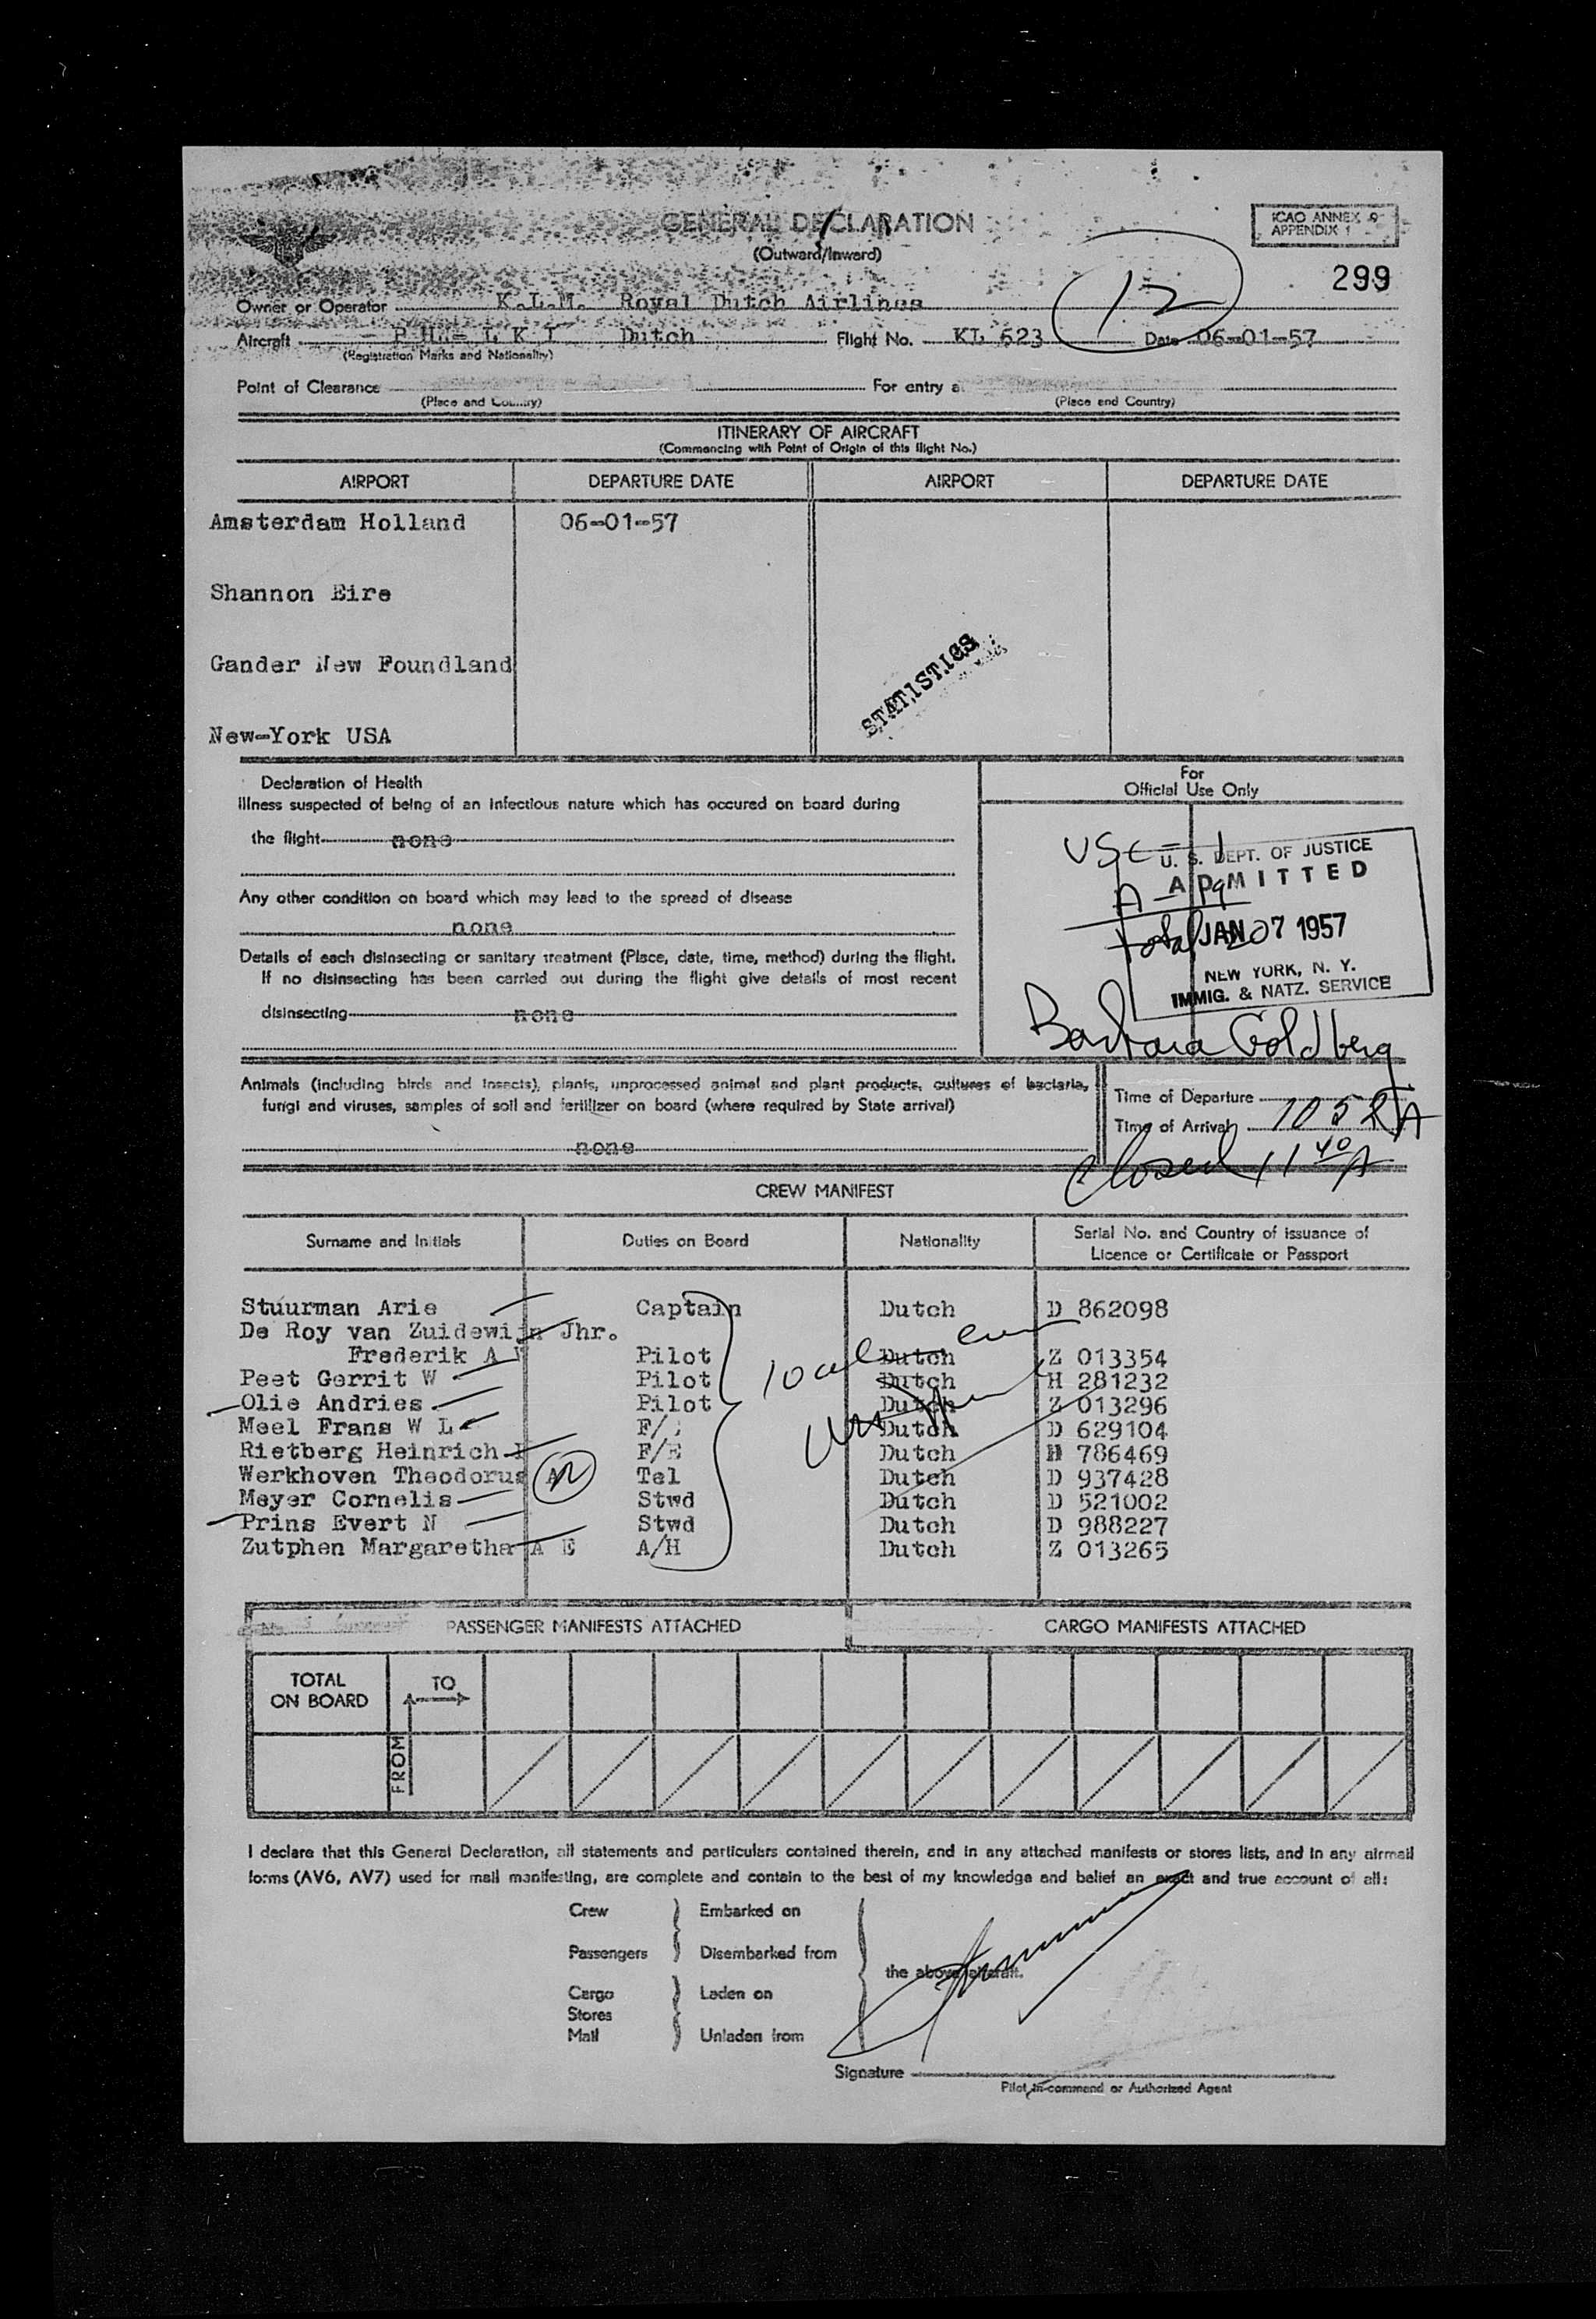 GENERAL DECLARATION
(Outward/Inward)
ICAO ANNEX 9
APPENDIX 1
299
12
Owner or Operator K.L.M. Royal Dutch Airlines
Aircraft PH - L K I Dutch Flight No. KL 623 Date 06-01-57
(Registration Marks and Nationality)
Point of Clearance For entry at
(Place and Country) (Place and Country)
ITINERARY OF AIRCRAFT
(Commencing with Point of Origin of this flight No.)
AIRPORT DEPARTURE DATE AIRPORT DEPARTURE DATE
Amsterdam Holland 06-01-57
Shannon Eire
Gander New Foundland
STATISTICS
New-York USA
Declaration of Health
Illness suspected of being of an infectious nature which has occured on board during
the flight none
Any other condition on board which may lead to the spread of disease
none
Details of each disinsecting or sanitary treatment (Place, date, time, method) during the flight.
If no disinsecting has been carried out during the flight give details of most recent
disinsecting none
For
Official Use Only
USC - 1
A -
Total
U. S. DEPT. OF JUSTICE
ADMITTED
JAN 07 1957
NEW YORK, N. Y.
IMMIG. & NATZ. SERVICE
Barbara Goldberg
Animals (including birds and insects), plants, unprocessed animal and plant products, cultures of bacteria,
fungi and viruses, samples of soil and fertilizer on board (where required by State arrival)
none
Time of Departure
Time of Arrival 1052A
Closed 11 40 A
CREW MANIFEST
Surname and Initials Duties on Board Nationality Serial No. and Country of issuance of
Licence or Certificate or Passport
Stuurman Arie Captain Dutch D 862098
De Roy van Zuidewijn Jhr.
Frederik A Pilot Dutch Z 013354
Peet Gerrit W Pilot Dutch H 281232
Olie Andries Pilot Dutch Z 013296
Meel Frans W L F/ Dutch D 629104
Rietberg Heinrich F/E Dutch H 786469
Werkhoven Theodorus Tel Dutch D 937428
Meyer Cornelis Stwd Dutch D 521002
Prins Evert N Stwd Dutch D 988227
Zutphen Margaretha A E A/H Dutch Z 013265
10
PASSENGER MANIFESTS ATTACHED CARGO MANIFESTS ATTACHED
TOTAL
ON BOARD
TO
FROM
I declare that this General Declaration, all statements and particulars contained therein, and in any attached manifests or stores lists, and in any airmail
forms (AV6, AV7) used for mail manifesting, are complete and contain to the best of my knowledge and belief an exact and true account of all:
Crew Embarked on
Passengers Disembarked from
the above aircraft.
Cargo Laden on
Stores
Mail Unladen from
Signature
Pilot in-command or Authorized Agent